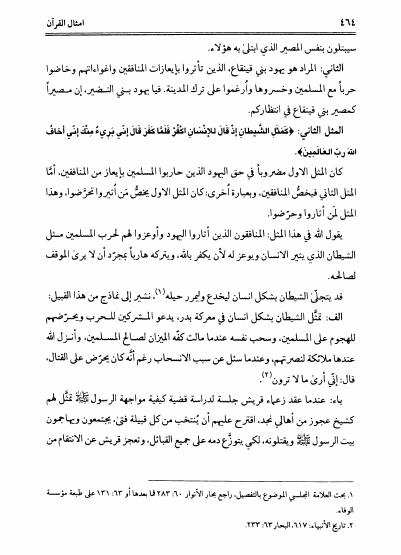 ٤٦٤
امثال القرآن
سيبتلون بنفس المصير الذي ابتلىٰ به هؤلاء.
الثاني: المراد هو يهود بني قينقاع، الذين تأثروا بإيعازات المنافقين واغواءاتهم وخاضوا
حرباً مع المسلمين وخسروها وأُرغموا على ترك المدينة. فيا يهود بـني النـضير، إن مـصيراً
كمصير بني قينقاع في انتظاركم.
المثل الثاني: ﴿كَمَثَلِ الشَّيطَانِ إذْ قَالَ للإنْسَانِ اكْفُرْ فَلَمَّا كَفَرَ قَالَ إنّي بَرِيءٌ مِنْكَ إنّي أخَافُ
اللهَ رَبَّ العَالَمِينَ﴾.
كان المثل الاول مضروباً في حق اليهود الذين حاربوا المسلمين بإيعاز من المنافقين، أمَّا
المثل الثاني فيخصُّ المنافقين، وبعبارة أُخرى: كان المثل الاول يخصُّ مَن أُثيروا تحرَّضوا، وهذا
المثل لمَنْ أثاروا وحرّضوا.
يقول الله في هذا المثل: المنافقون الذين أثاروا اليهود وأوعزوا لهم لحرب المسلمين مـثل
الشيطان الذي يثير الانسان ويوعز له لأن يكفر بالله، ويتركه هارباً بمجرّد أن لا يرىٰ الموقف
لصالحه.
قد يتجلىٰ الشيطان بشكل انسان ليخدع وليمرر حيله(١)، نشير إلى نماذج من هذا القبيل:
الف: تمثّل الشيطان بشكل انسان في معركة بدر، يدعو المـشركين للـحرب ويحـرّضهم
للهجوم على المسلمين، وسحب نفسه عندما مالت كفّة الميزان لصالح المسلمين، وأنـزل الله
عندها ملائكة لنصرتهم، وعندما سئل عن سبب الانسحاب رغم أنَّه كان يحرّض على القتال،
قال: إنّي أرىٰ ما لا ترون(٢).
باء: عندما عقد زعماء قريش جلسة لدراسة قضية كيفية مواجهة الرسول ﷺ تمثّل لهم
كشيخ عجوز من أهالي نجد، اقترح عليهم أن يُنتخب من كل قبيلة فتىٰ، يجتمعون ويهاجمون
بيت الرسول ﷺ ويقتلونه، لكي يتوزَّع دمه على جميع القبائل، وتعجز قريش عن الانتقام من
١. بحث العلامة المجلسي الموضوع بالتفصيل، راجع بحار الأنوار ٦٠: ٢٨٣ فما بعدها أو ٦٣: ١٣١ على طبعة مؤسسة
الوفاء.
٢. تاريخ الأنبياء: ٦١٧، البحار ٦٣: ٢٣٣.